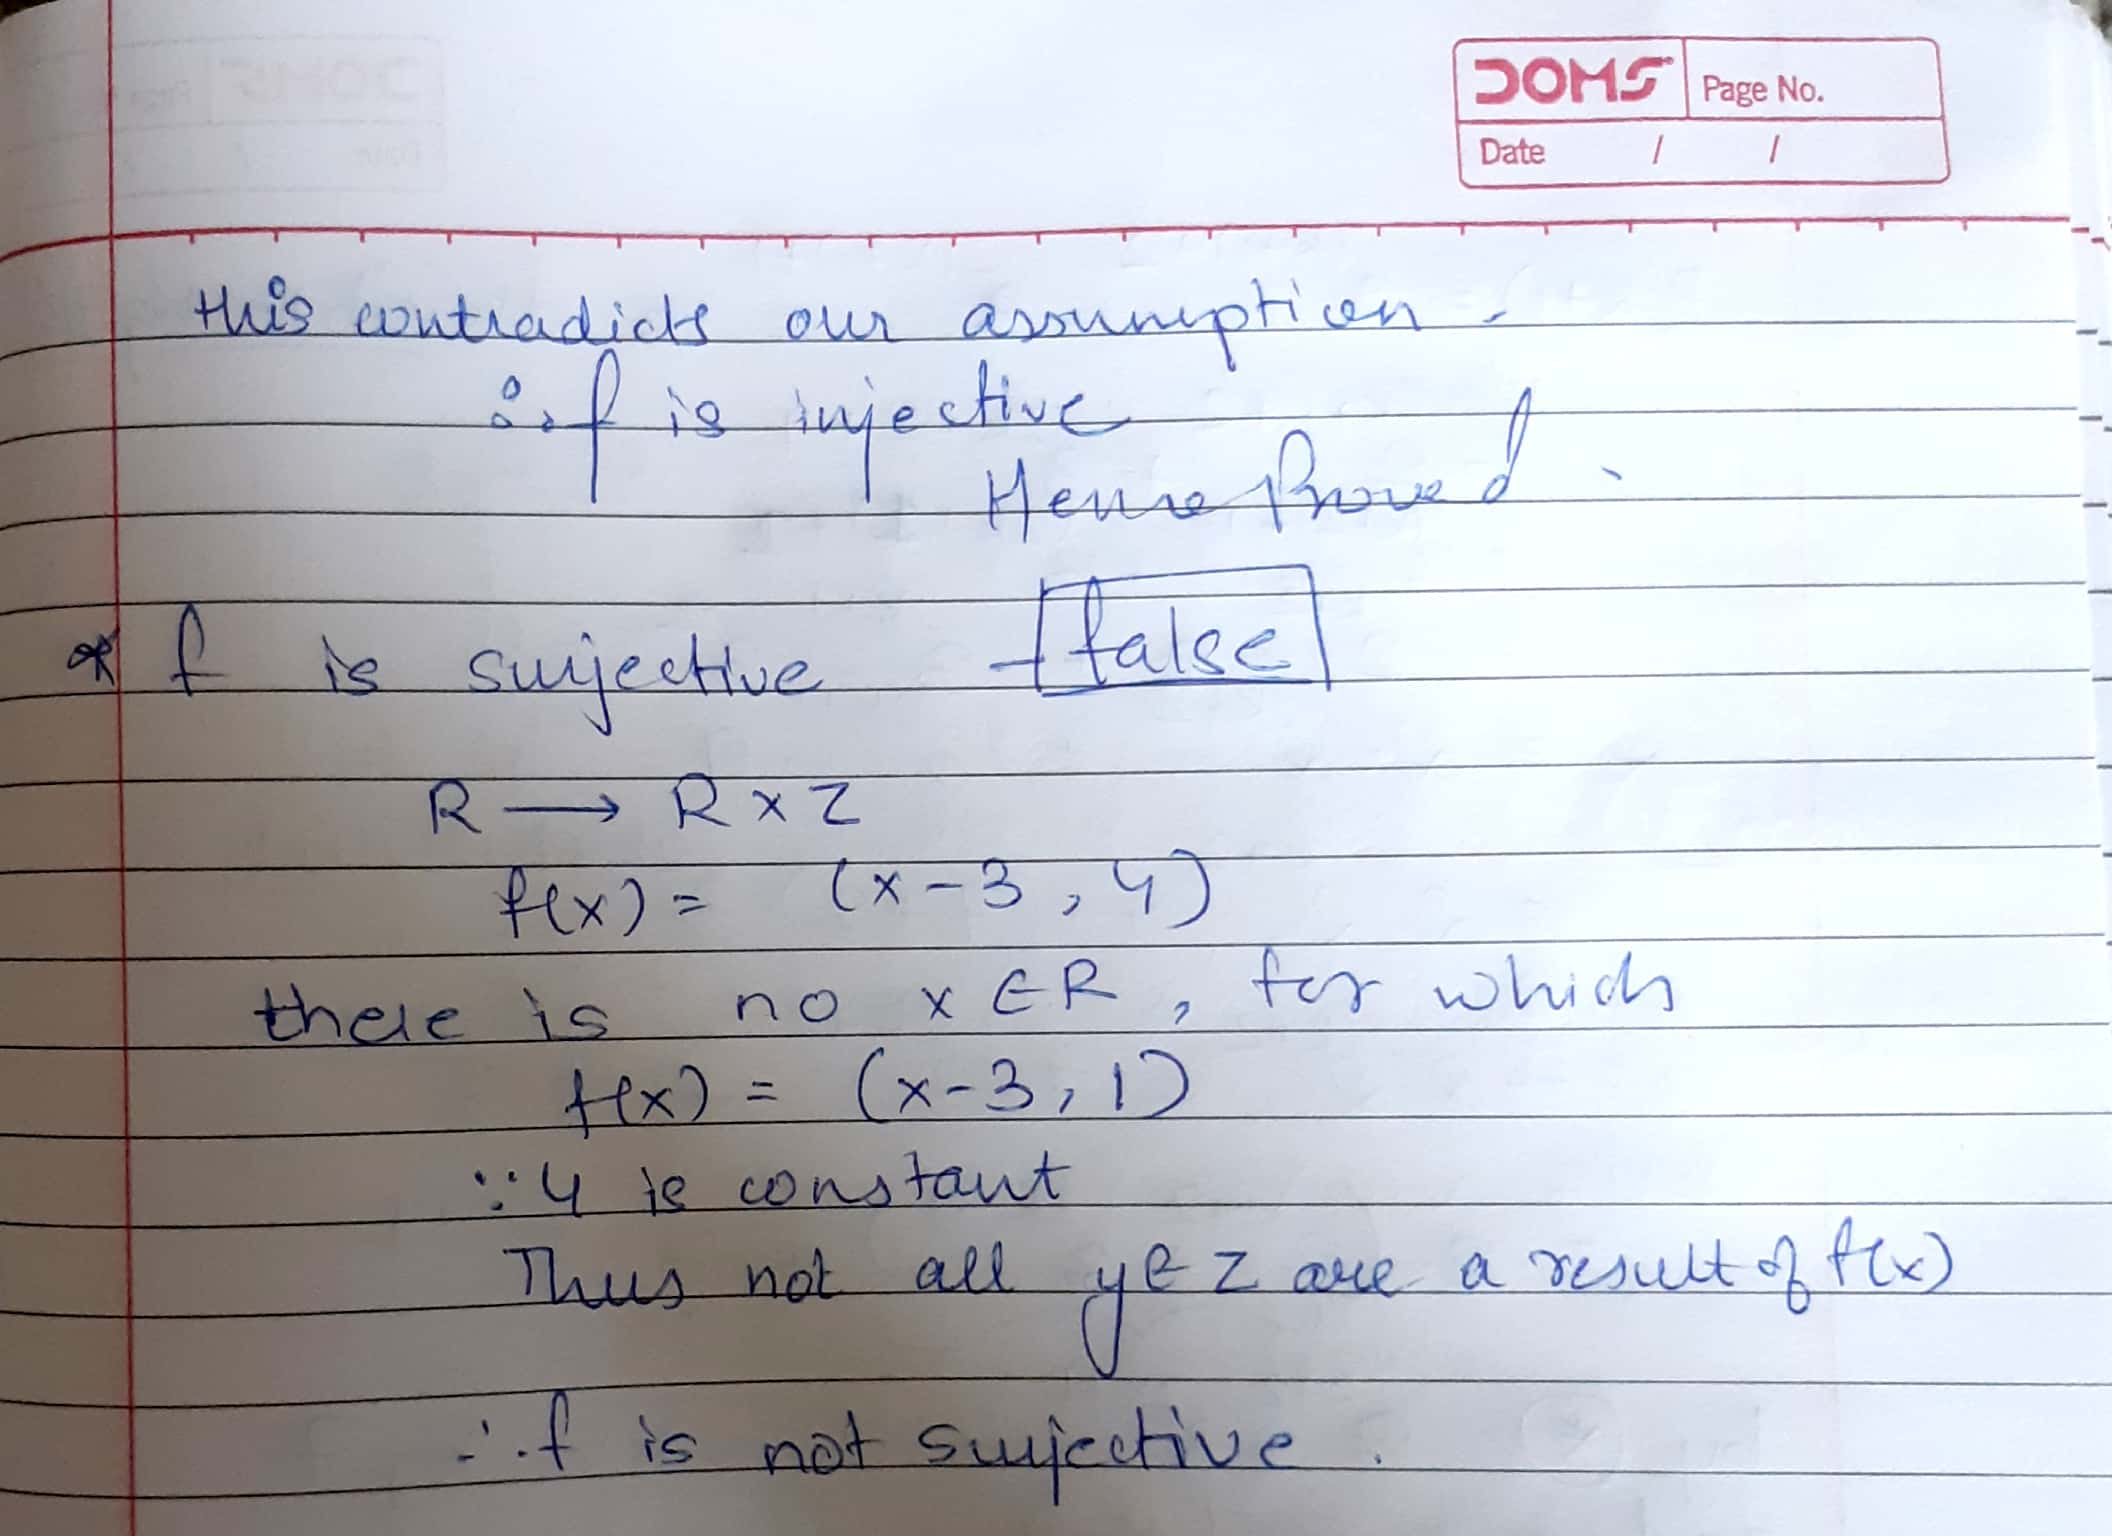 DOMS Page No.
Date / /
this contradicts our assumption.
∴ f is injective
Hence Proved.
* f is surjective - false
R → R x Z
f(x) = (x-3, 4)
there is no x ∈ R, for which
f(x) = (x-3, 1)
∵ 4 is constant
Thus not all y ∈ Z are a result of f(x)
∴ f is not surjective.